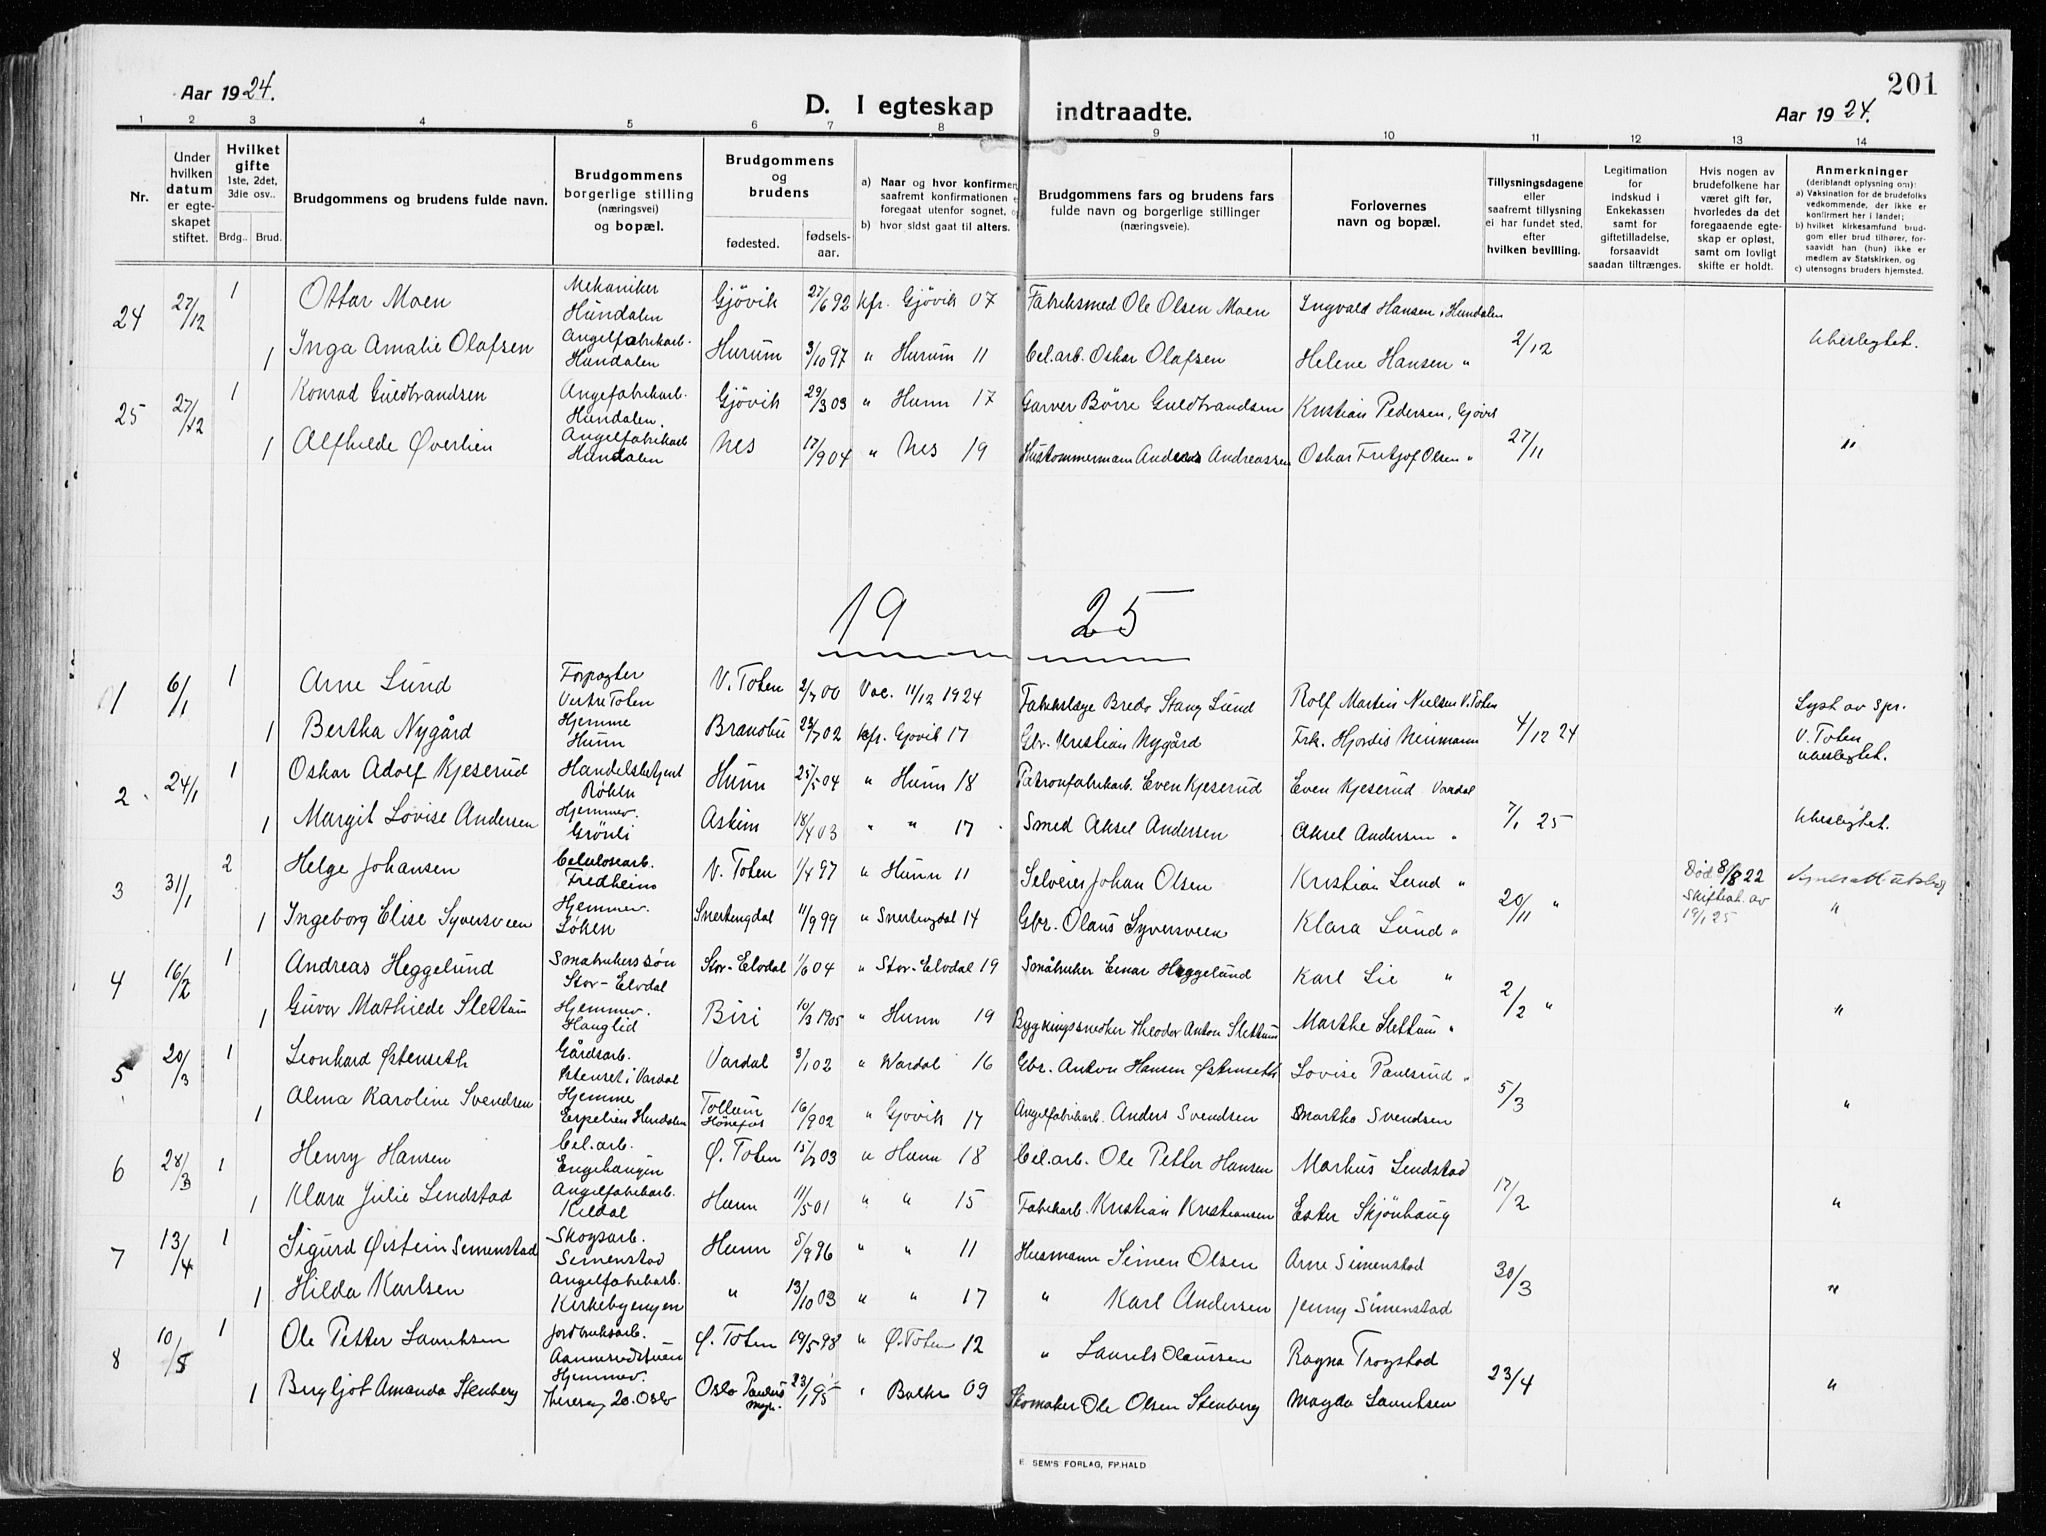 201
Aar 1924.
D. I egteskap indtraadte.
Aar 1924.
1 2 3 4 5 6 7 8 9 10 11 12 13 14
Nr.
Under hvilken datum er egteskapet stiftet.
Hvilket gifte 1ste, 2det, 3die osv..
Brdg.. Brud.
Brudgommens og brudens fulde navn.
Brudgommens borgerlige stilling (næringsvei) og bopæl.
Brudgommens og brudens
fødested. fødsels-aar.
a) Naar og hvor konfirmer saafremt konfirmationen foregaat utenfor sognet,
b) hvor sidst gaat til alters.
Brudgommens fars og brudens fars fulde navn og borgerlige stillinger (næringsveie).
Forlovernes navn og bopæl.
Tillysningsdagene eller saafremt tillysning ei har fundet sted, efter hvilken bevilling.
Legitimation for indskud i Enkekassen samt for giftetilladelse, forsaavidt saadan tiltrænges.
Hvis nogen av brudefolkene har været gift før, hvorledes da det foregaaende egteskap er opløst, samt om lovligt skifte er holdt.
Anmerkninger (deriblandt oplysning om): a) Vaksination for de brudefolks vedkommende, der ikke er konfirmert her i landet; b) hvilket kirkesamfund brudgom eller brud tilhører, forsaavidt han (hun) ikke er medlem av Statskirken, og c) utensogns bruders hjemsted.
24 27/12 1 Ottar Moen Mekaniker Hundalen Gjøvik 27/6 92 kfr. Gjøvik 07 Fabriksmed Ole Olsen Moen Ingvald Hansen, Hundalen
1 Inga Amalie Olafsen Angelfabrikarb. Hundalen Hurum 3/10 97 " Hurum 11 Cel.arb. Oskar Olafsen Helene Hansen " 2/12 Ubeslegtet.
25 27/12 1 Konrad Guldbrandsen Angelfabrikarb. Hundalen. Gjøvik 29/3 03 " Hunn 17 Garver Børre Guldbrandsen Kristian Pedersen, Gjøvik
1 Alfhilde Øverlien Angelfabrikarb Hundalen Nes 17/9 04 " Nes 19 Hustømmermann Andreas Andreassen Oskar Fritjof Olsen " 27/11 "
19 25
1 6/1 1 Arne Lund Forpagter Vestre Toten V. Toten 2/7 00 Vac. 11/12 1924 Fabrikslæge Bredo Stang Lund Rolf Martin Nielsen V. Toten
1 Bertha Nygård Hjemme Hunn Brandbu 23/7 02 kfr. Gjøvik 17 Gbr. Kristian Nygård Frk. Hjørdis Neumann 4/12 24 Lyst av spr. V. Toten ubeslegtet.
2 24/1 1 Oskar Adolf Kjeserud Handelsbetjent Røhln Hunn 25/5 04 " Hunn 18 Patronfabrikarb. Even Kjeserud Even Kjeserud Vardal
1 Margit Lovise Andersen Hjemmev. Grönli Askim 18/4 03 " " 17 Smed Aksel Andersen Aksel Andersen " 7/1 25 Ubeslegtet.
3 31/1 2 Helge Johansen Celulosearb. Fredheim V. Toten 1/4 97 " Hunn 11 Selveier Johan Olsen Kristian Lund " Död 8/8 22 Skifteat. av 19/1 25
1 Ingeborg Elise Syversveen Hjemmev. Löken Snertingdal 11/9 99 " Snertingdal 14 Gbr. Olaus Syversveen Klara Lund " 20/11 " "
4 16/2 1 Andreas Heggelund Småbrukerssøn Stor-Elvdal Stor-Elvdal 1/6 04 " Stor-Elvdal 19 Småbruker Einar Heggelund Karl Lie "
1 Guvor Mathilde Slettum Hjemmev. Hauglid Biri 10/3 1905 " Hunn 19 Bygningssnedker Theodor Anton Slettum Marthe Slettum " 2/2 " "
5 20/3 1 Leonhard Østenseth Gårdsarb. Østenset i Vardal Vardal 3/1 02 " Vardal 16 Gbr. Anton Hansen Østenseth Lovise Paulsrud "
1 Alma Karoline Svendsen Hjemme Espelien Hundalen Tollum Hönefos 16/9 02 " Gjøvik 17 Angelfabrikarb. Anders Svendsen Martha Svendsen 5/3 "
6 28/3 1 Henry Hansen Cel.arb. Engehaugen Ø. Toten 15/7 03 " Hunn 18 Cel.arb. Ole Petter Hansen Markus Lindstad
1 Klara Julie Lindstad Angelfabrikarb. Kildal Hunn 11/5 01 " " 15 Fabrikarb. Kristian Kristiansen Ester Skjønhaug 17/2 "
7 13/4 1 Sigurd Øistein Simenstad Skogsarb. Simenstad Hunn 5/9 96 " " 11 Husmann Simen Olsen Arne Simenstad
1 Hilda Karlsen Angelfabrikarb. Kirkebyengen " 13/10 03 " " 17 " Karl Andersen Jenny Simenstad 30/3 "
8 10/5 1 Ole Petter Lauritsen Jordbruksarb. Ø. Toten 19/5 98 " Ø. Toten 12 " Laurits Olaussen Ragna Trogstad
1 Bergljot Amanda Stenberg Hjemmev. Theresg 20. Oslo Oslo Paulus mgh. 23/1 95 " Balke 09 Skomaker Ole Olsen Stenberg Magda Lauritsen 23/4 "
E. SEM'S FORLAG, FR.HALD